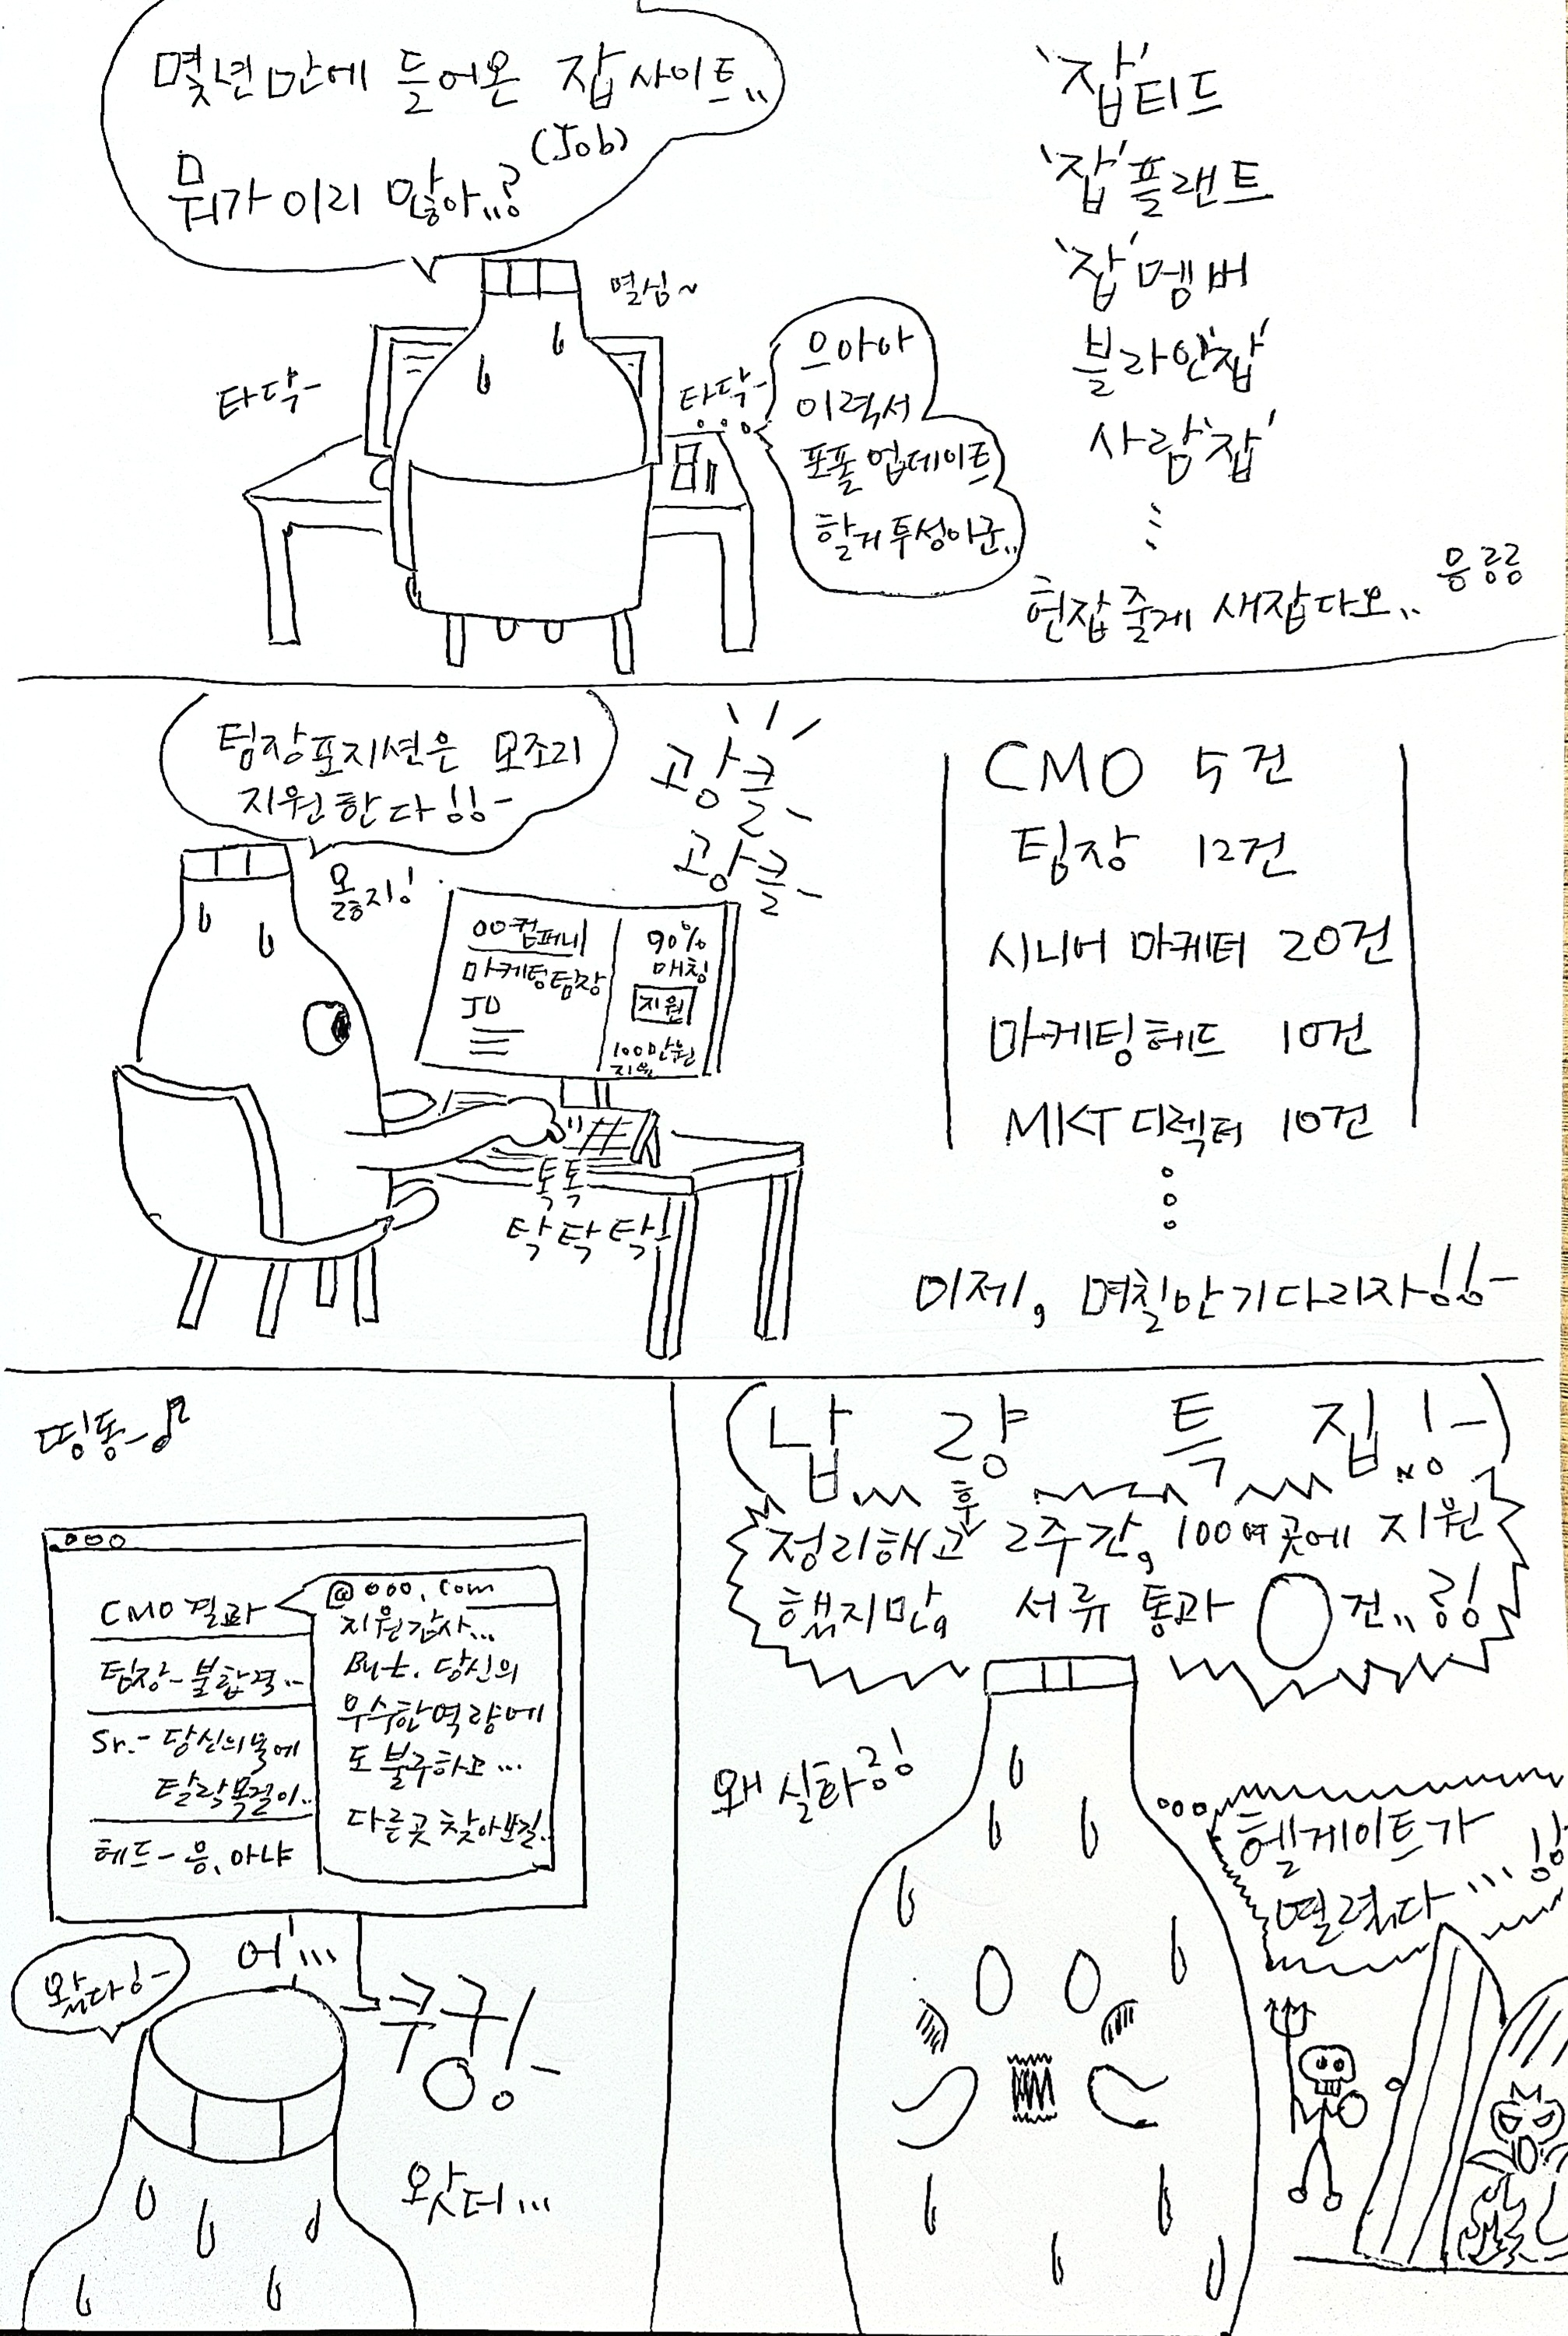 몇년만에 들어온 잡사이트..
(Job)
뭐가 이리 많아..?
열심~
타닥-
타닥-
으아아
이력서
포폴 업데이트
할거 투성이군..
'잡'티드
'잡'플랜트
'잡'멤버
블라인'잡'
사람'잡'
헌잡줄게 새잡다오..
응ㄹㄹ
팀장포지션은 모조리
지원한다!!-
옳지!
광클-
광클-
OO컴퍼니
마케팅팀장
JD
90%
매칭
지원
100만원
지원
톡톡
탁탁탁!
CMO 5건
팀장 12건
시니어 마케터 20건
마케팅헤드 10건
MKT 디렉터 10건
이제, 며칠만 기다리자!!-
띵동-♪
CMO 결과
팀장-불합격..
Sr.- 당신의 목에
탈락목걸이..
헤드-응, 아냐
@ooo.com
지원감사...
But. 당신의
우수한역량에
도 불구하고...
다른곳 찾아보길..
어...
왔다!-
쿠궁!-
왓더...
(납량특집!-)
정리해고 후 2주간, 100여곳에 지원
했지만, 서류 통과 0건..ㄹ!
왜 실화ㄹ!
헬게이트가
열렸다...!!